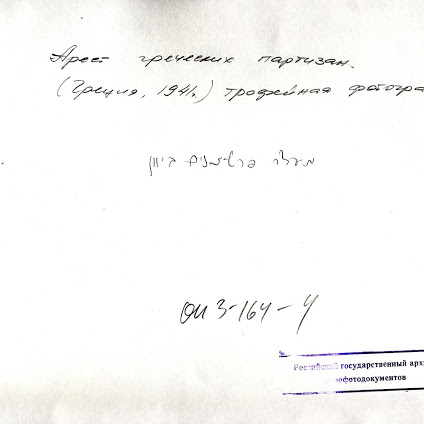 Арест греческих партизан.
(Греция, 1941г.) трофейная фотогра
מעצר פרטיזנים ביוון
ОИ 3-164-4
Российский государственный архи
нофотодокументов